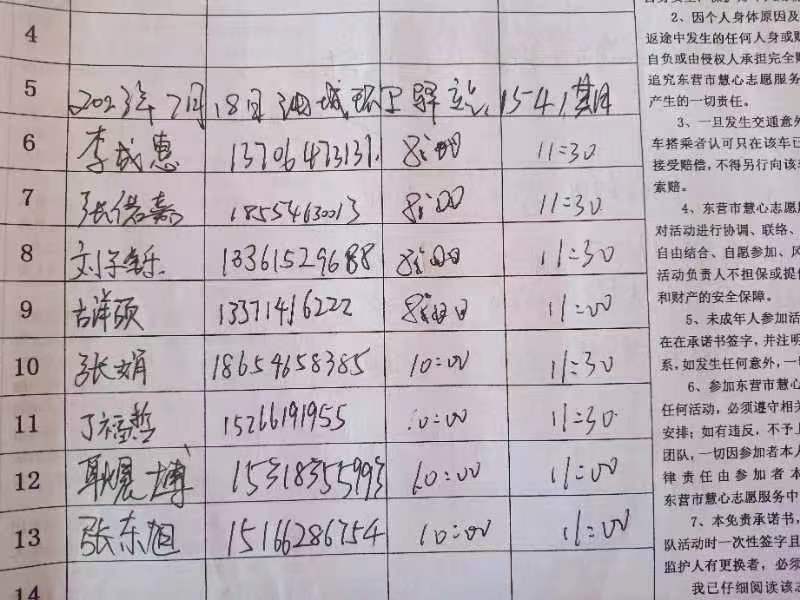 4
5 2023年7月18日 油城环卫驿站 1541期
6 李成惠 13706473131 8:00 11:30
7 张偌嘉 18554630013 8:00 11:30
8 刘子乐 13361529688 8:00 11:30
9 硕 13371416222 8:00 11:00
10 张娟 18654658385 10:00 11:30
11 丁福哲 15266191955 10:00 11:30
12 博 15318355993 10:00 11:00
13 张东旭 15166286754 10:00 11:00
14
2、因个人身体原因及
返途中发生的任何人身或财
自负或由侵权人承担完全
追究东营市慧心志愿服务
产生的一切责任。
3、一旦发生交通意外
车搭乘者认可只在该车已
接受赔偿，不得另行向该
索赔。
4、东营市慧心志愿
对活动进行协调、联络、
自由结合、自愿参加、风
活动负责人不担保或提
和财产的安全保障。
5、未成年人参加活
在在承诺书签字，并注明
系，如发生任何意外，一
6、参加东营市慧心
任何活动，必须遵守相关
安排；如有违反，不予上
团队，一切因参加者本人
律责任由参加者本
东营市慧心志愿服务中
7、本免责承诺书，
队活动时一次性签字且
监护人有更换者，必须
我已仔细阅读该